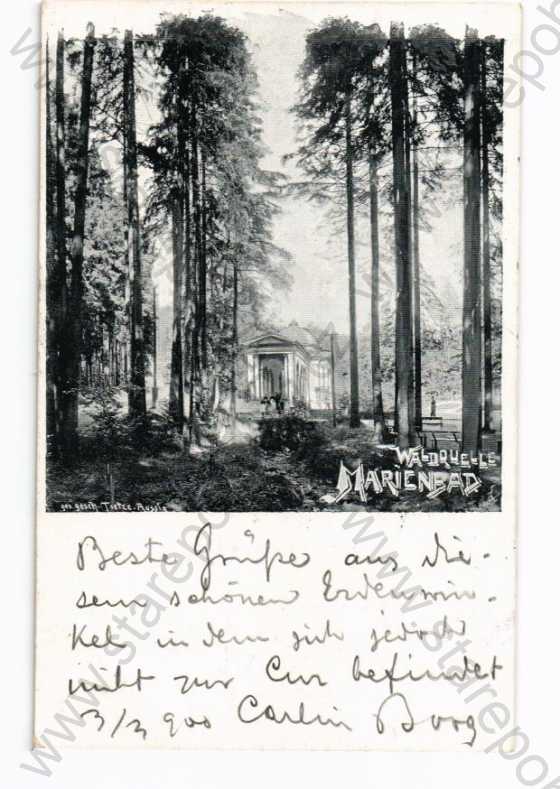 WALDQUELLE
MARIENBAD
ges. gesch. Tietze. Aussig
Beste Grüße aus die-
sem schönen Erdenwin-
kel in dem sich jedoch
nicht zur Cur befindet
3/3 900 Carlin Borg
www.starepohledy